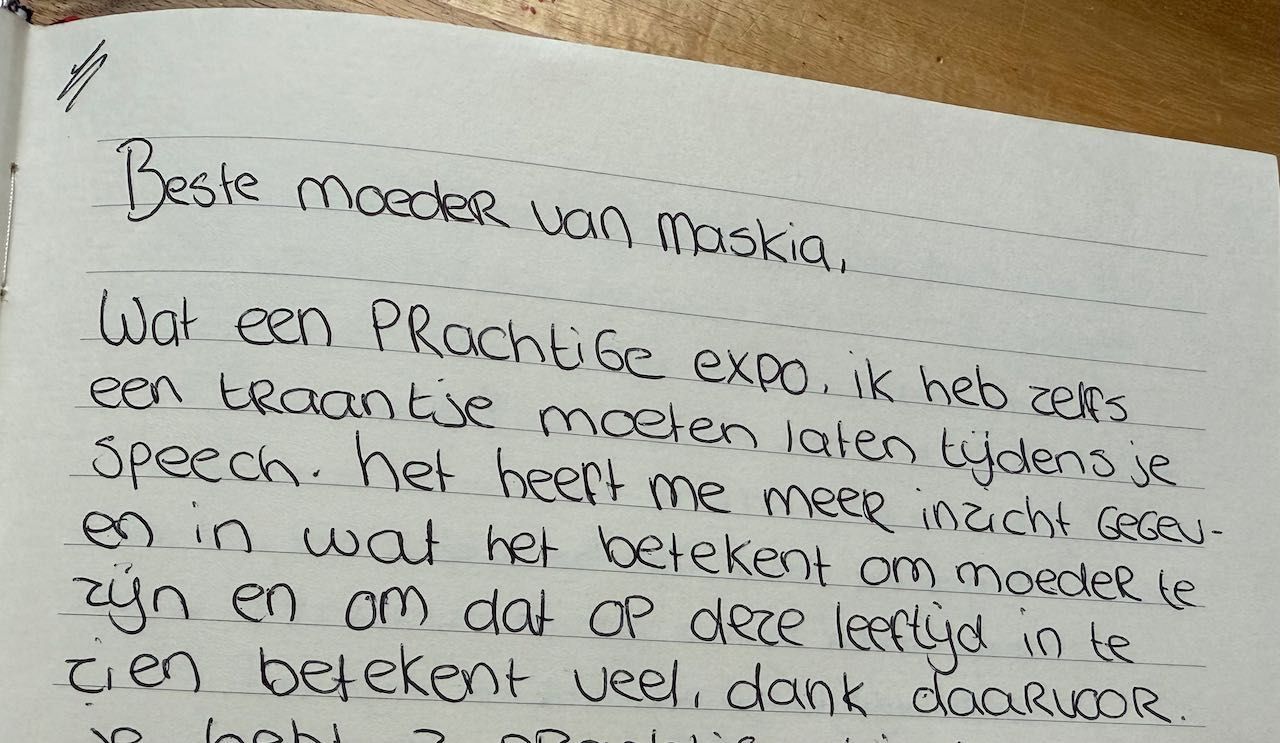 Beste moeder van maskia,
Wat een PRachtige expo, ik heb zelfs
een tRaantje moeten laten tijdens je
speech. het heeft me meer inzicht gegev-
en in wat het betekent om moeder te
zijn en om dat op deze leeftijd in te
zien betekent veel, dank daarvoor.
je hebt 2